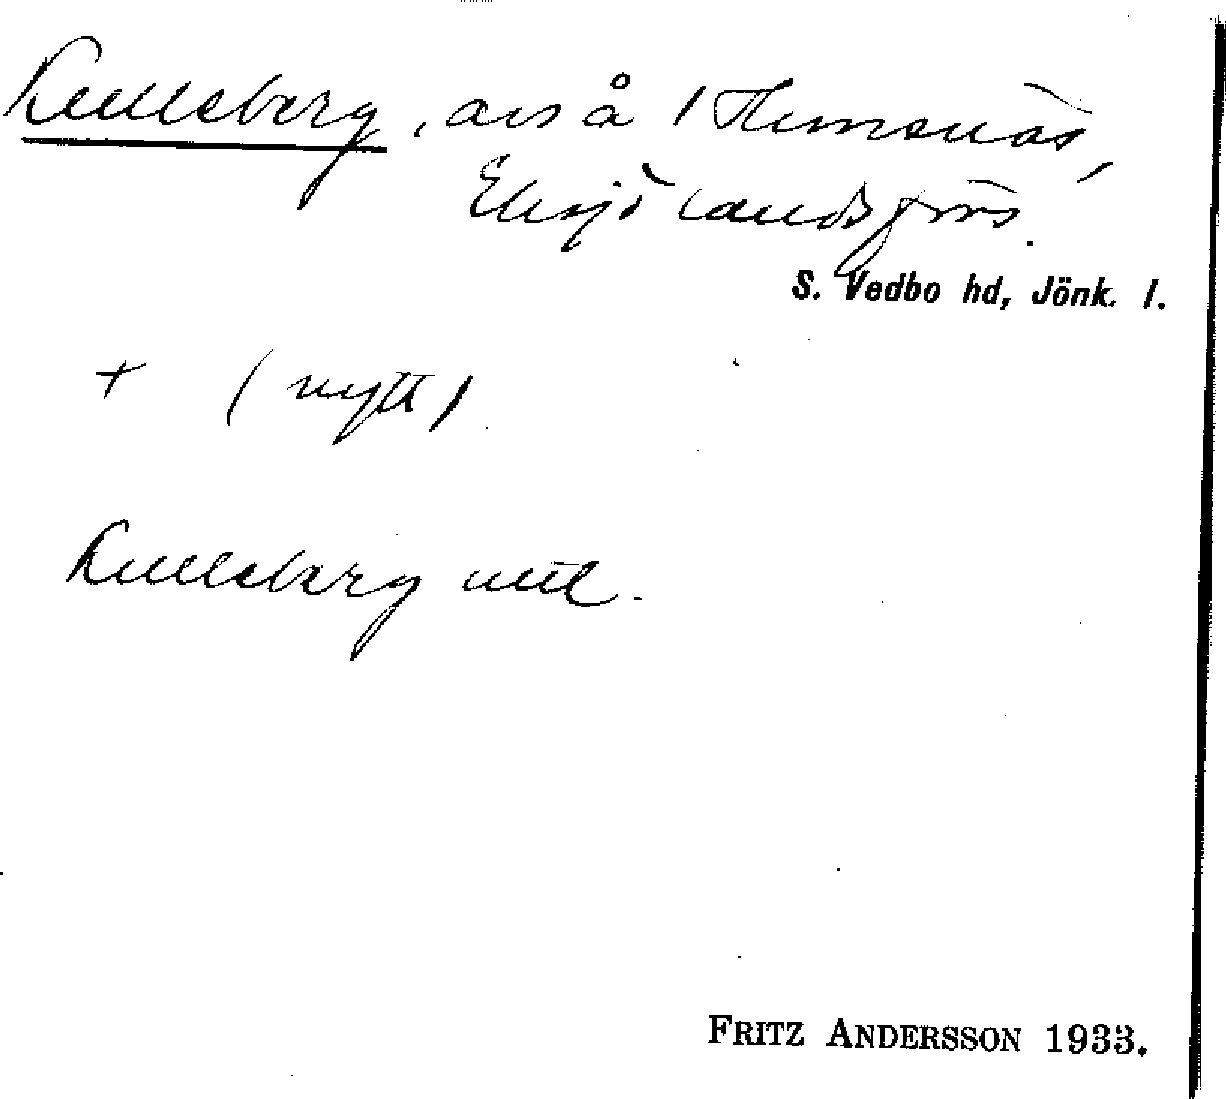 Kulleberg, avs å 1 Humsnäs,
Eksjö landsförs.
S. Vedbo hd, Jönk. l.
+ (nytt)
Kulleberg utt.
FRITZ ANDERSSON 1933.